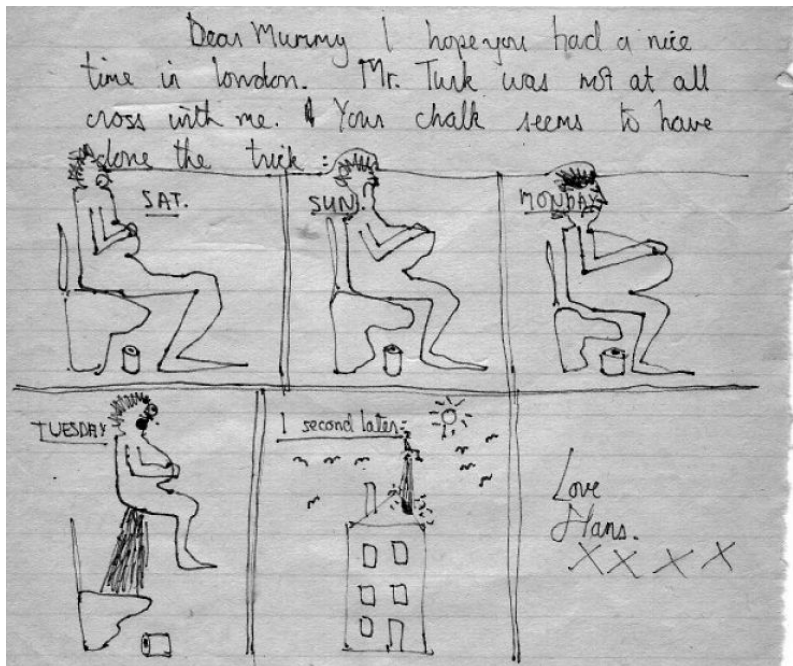 Dear Mummy I hope you had a nice
time in london. Mr. Turk was not at all
cross with me. Your chalk seems to have
done the trick :
SAT.
SUN.
MONDAY
TUESDAY
1 second later:
Love
Hans.
X X X X